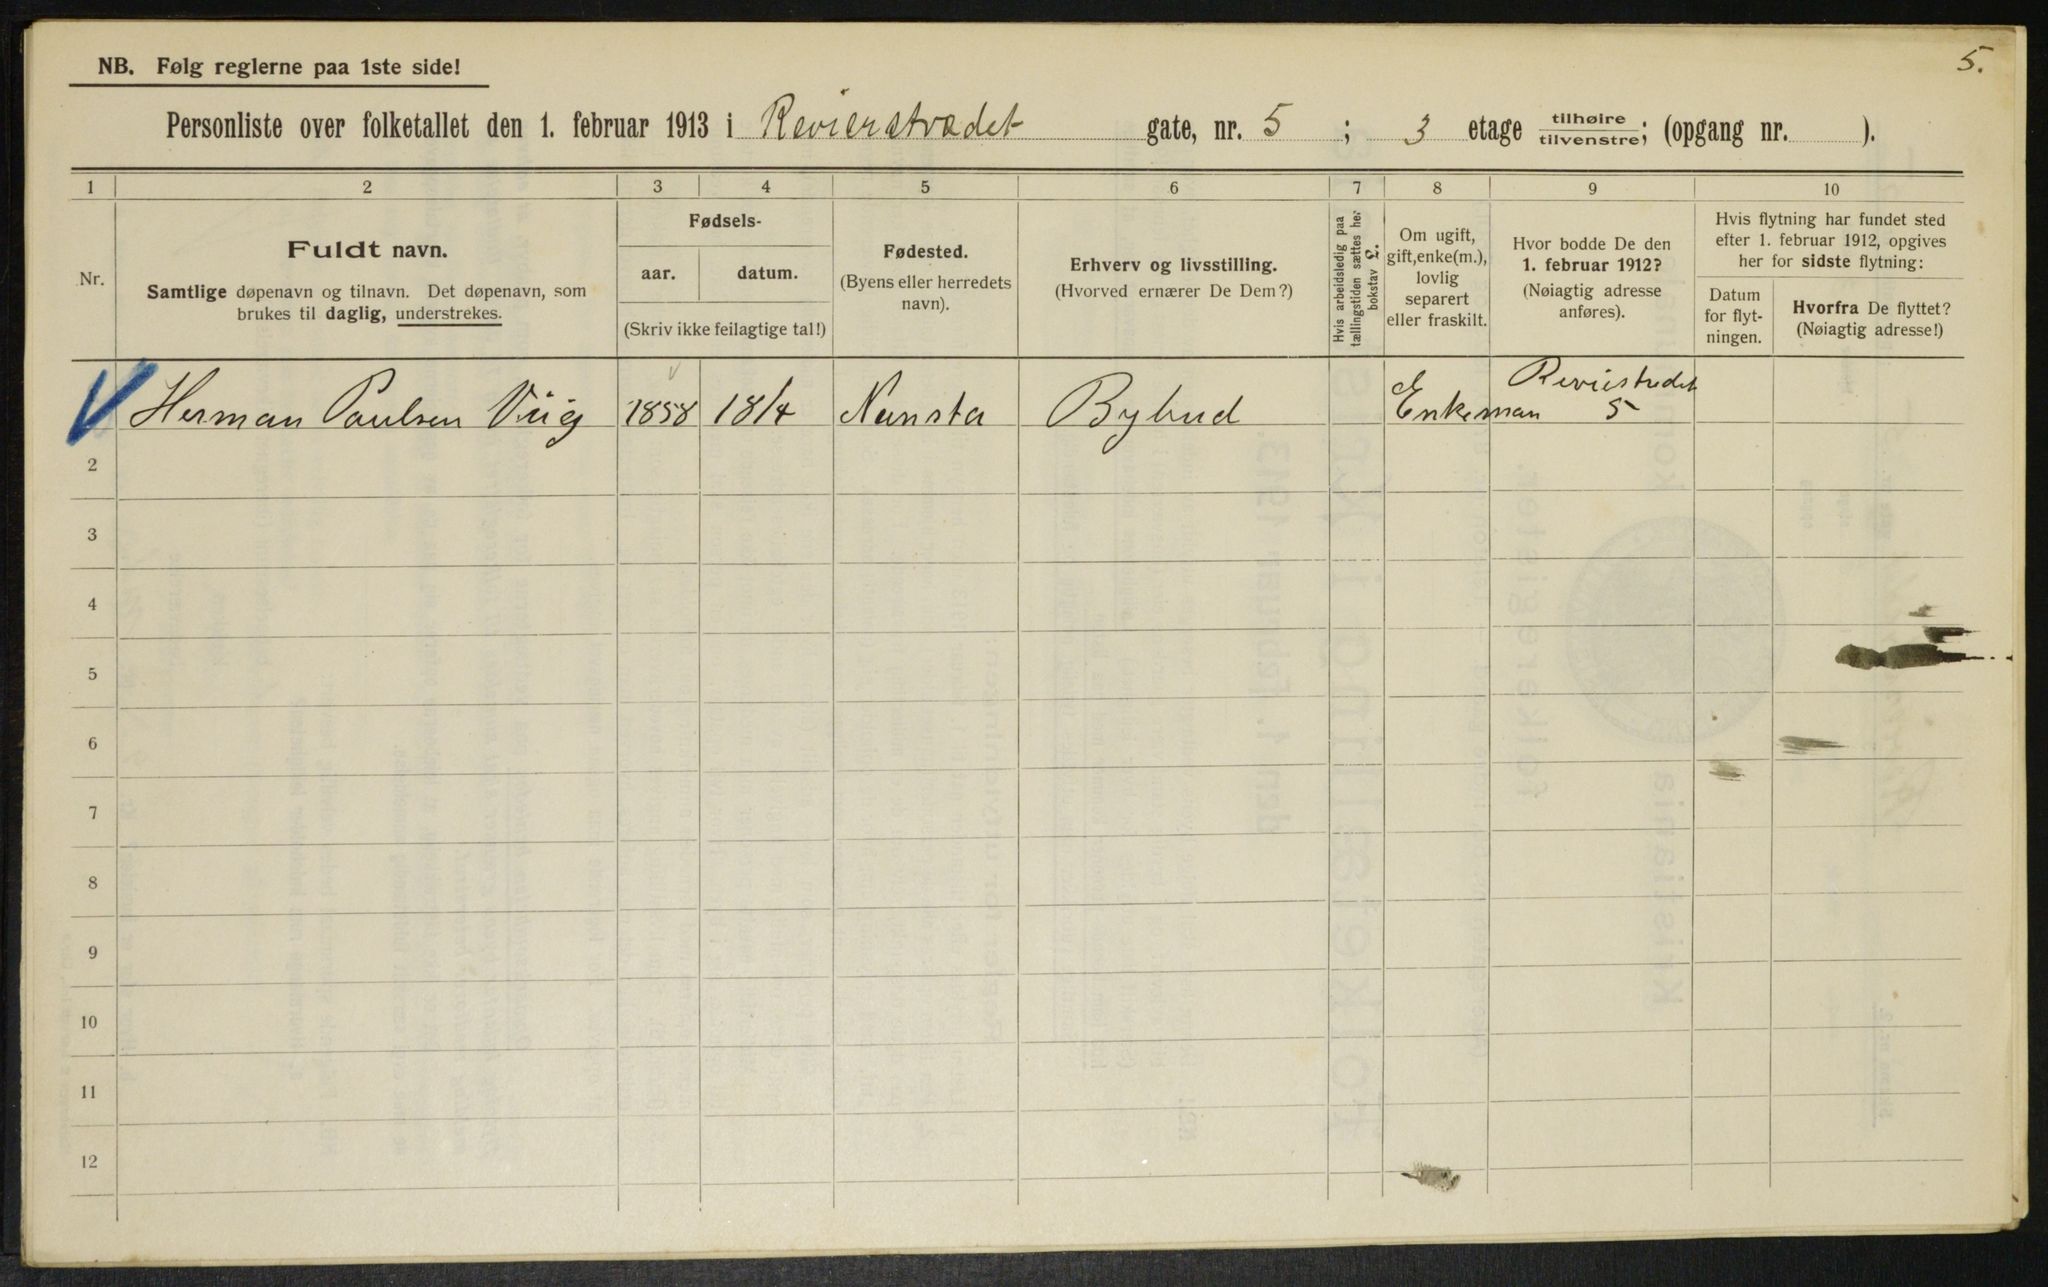 5.
NB. Følg reglerne paa 1ste side!
Personliste over folketallet den 1. februar 1913 i Revierstrædet gate, nr. 5 ; 3 etage tilhøire tilvenstre; (opgang nr. ).
1 2 3 4 5 6 7 8 9 10
Nr.
Fuldt navn.
Samtlige døpenavn og tilnavn. Det døpenavn, som
brukes til daglig, understrekes.
Fødsels-
aar. datum.
(Skriv ikke feilagtige tal!)
Fødested.
(Byens eller herredets
navn).
Erhverv og livsstilling.
(Hvorved ernærer De Dem?)
Hvis arbeidsledig paa
tællingstiden sættes her
bokstav L.
Om ugift,
gift, enke(m.),
lovlig
separert
eller fraskilt.
Hvor bodde De den
1. februar 1912?
(Nøiagtig adresse
anføres).
Hvis flytning har fundet sted
efter 1. februar 1912, opgives
her for sidste flytning:
Datum
for flyt-
ningen.
Hvorfra De flyttet?
(Nøiagtig adresse!)
Herman Paulsen 1858 18/4 Bybud Enkeman Reviestredet 5
2
3
4
5
6
7
8
9
10
11
12